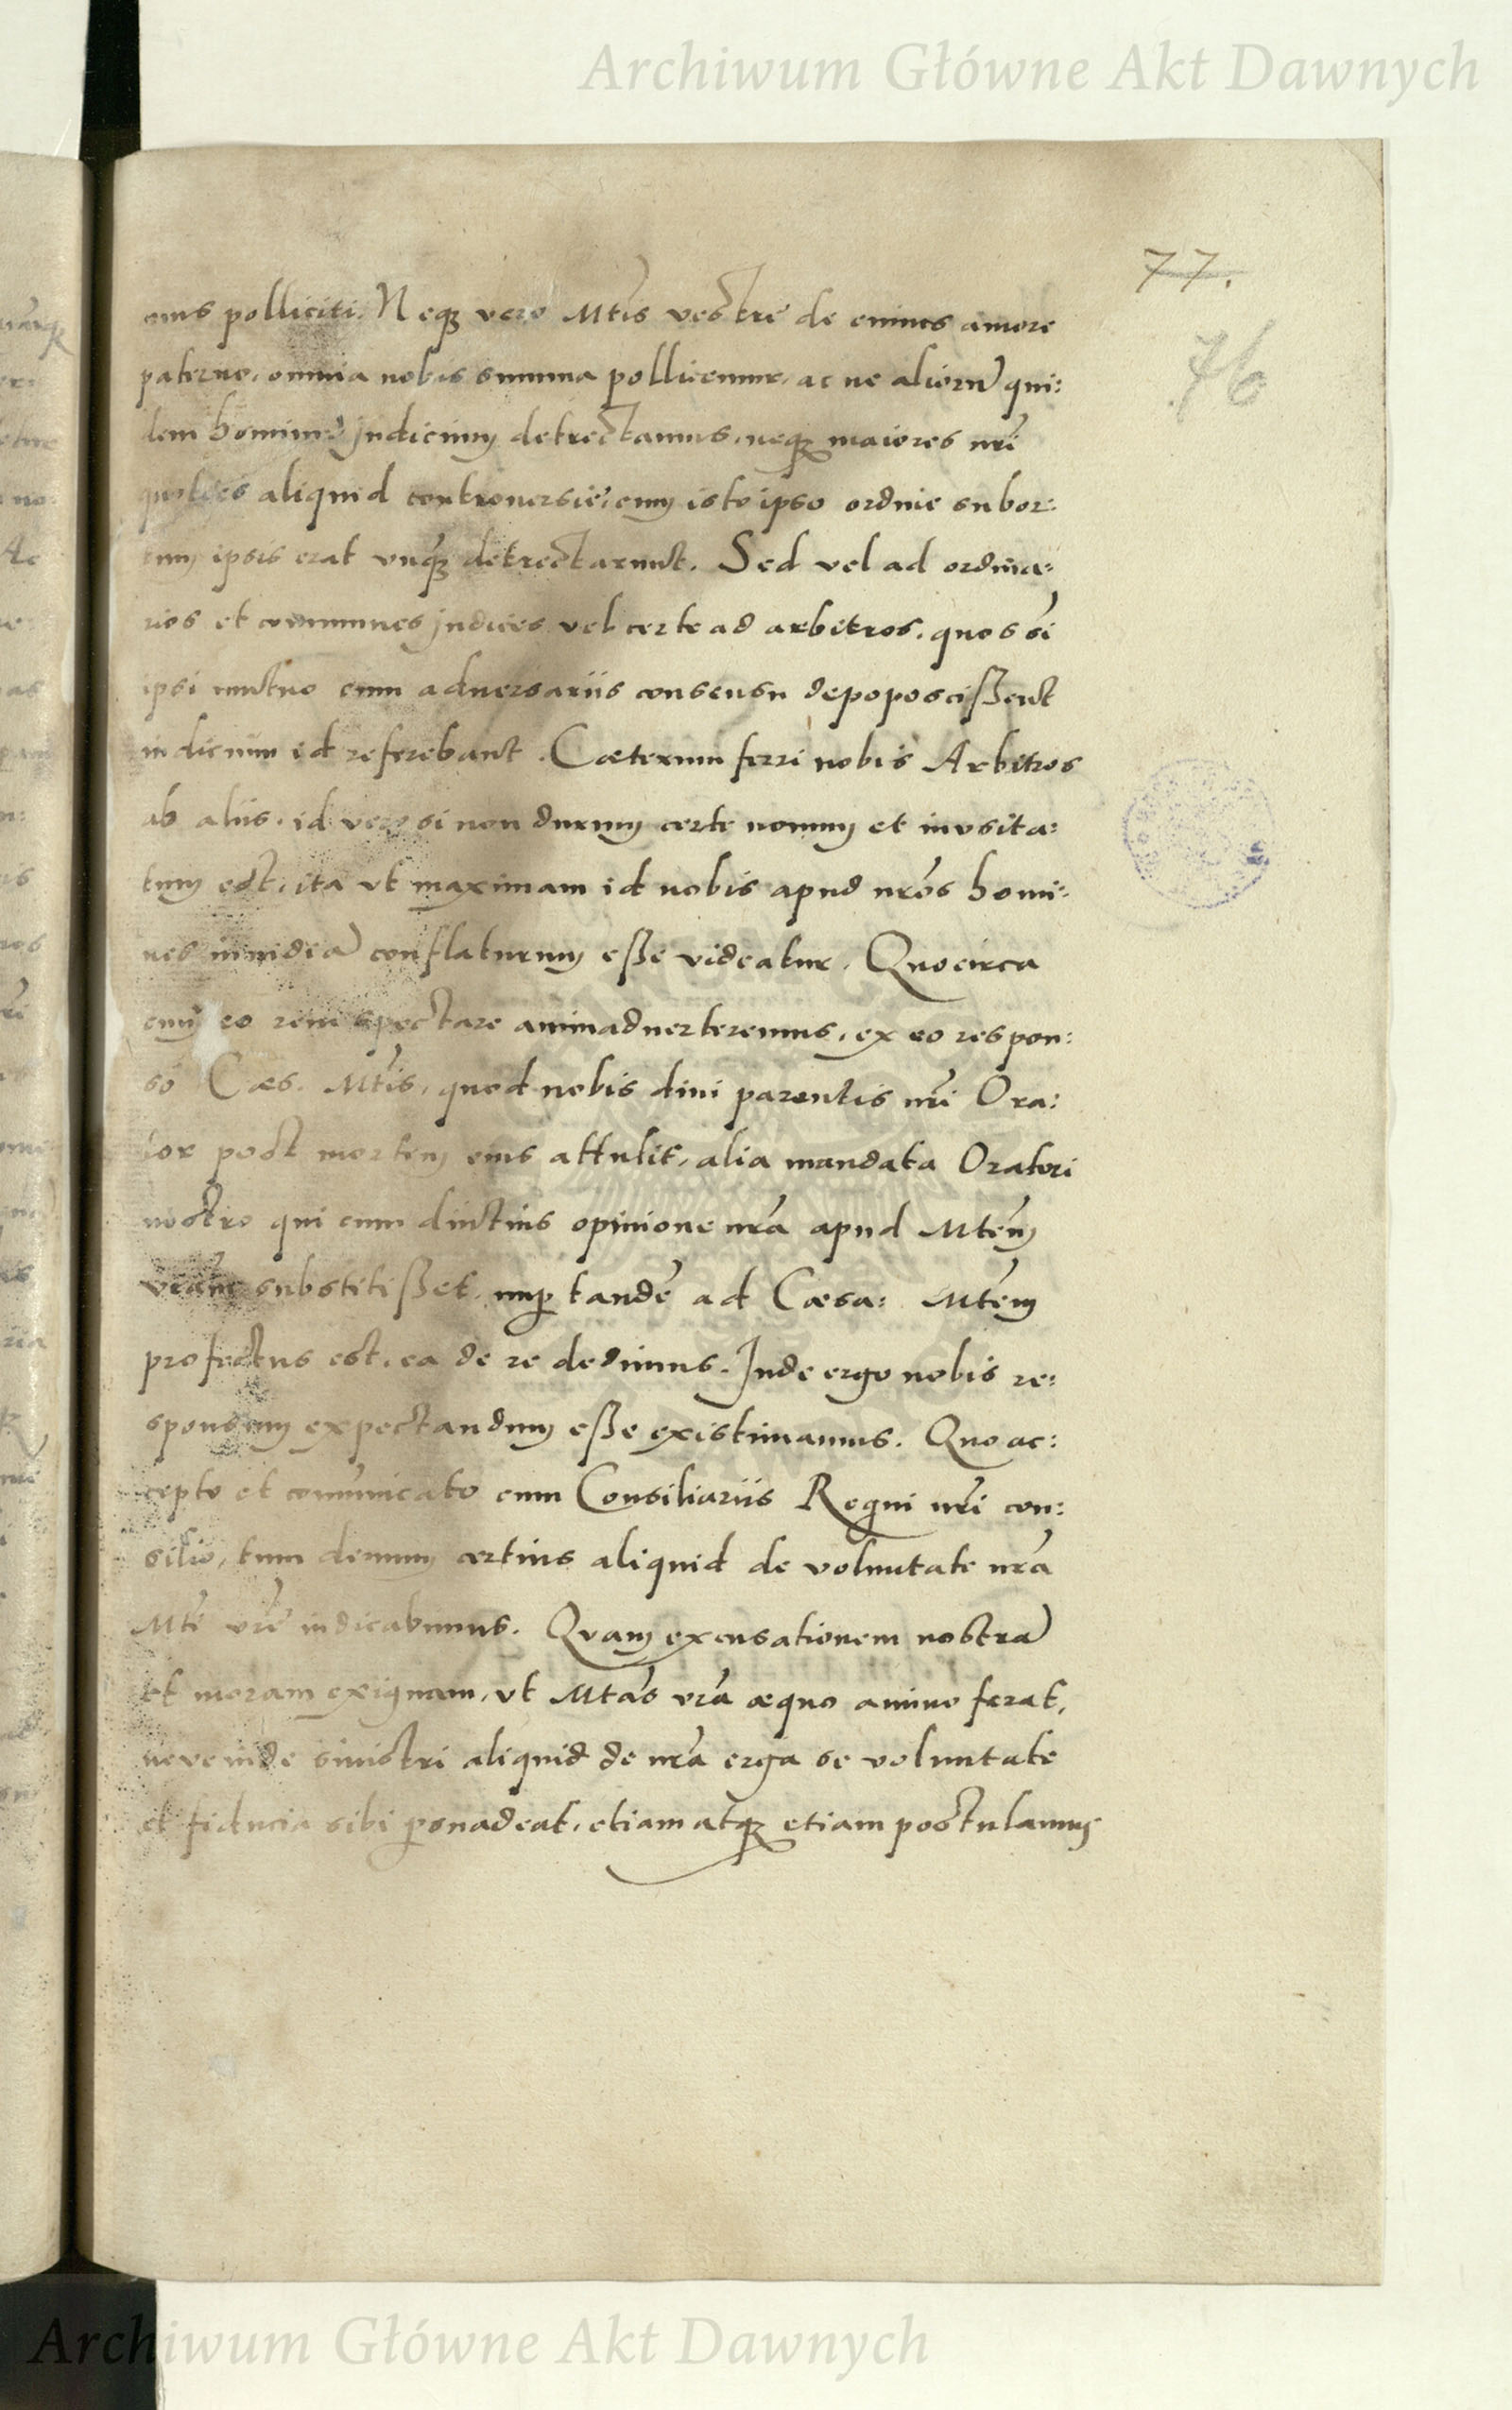 Archiwum Główne Akt Dawnych
77.
76
mus polliciti. Neqȝ vero Mtis vestrę de cuius amore
paterno, omnia nobis summa pollicemur, ac ne aliorū qui:
dem hominū judicium detrectamus, neqȝ maiores nrī
quoties aliquid controversię, cum isto ipso ordine subor:
tum ipsis erat vnqȝ detrectarunt. Sed vel ad ordina:
rios et communes judices vel certe ad arbitros, quos sī
ipsi mutuo cum adversariis consensu depoposcißent
judicium id referebant. Cæterum ferri nobis Arbitros
ab aliis, id vero si non durum certe nouum et invsita:
tum est, ita vt maximam id nobis apud nrōs homi:
nes inuidiā conflaturum eße videatur. Quocirca
cum eo rem spectare animadverteremus, ex eo respon:
so Cæs. Mtis, quod nobis diui parentis nrī Ora:
tor post mortem eius attulit, alia mandata Oratori
nostro qui cum diutius opinione nrā apud Mtēm
vrām substitißet, nup tandē ad Cæsa: Mtēm
profectus est, ea de re dedimus. Inde ergo nobis re:
sponsum expectandum eße existimamus. Quo ac:
cepto et comūnicato cum Consiliariis Regni nrī con:
silio, tum demum certius aliquid de voluntate nrā
Mti vrē indicabimus. Quam excusationem nostrā
et moram exiguam, vt Mtās vrā æquo animo ferat,
neve inde sinistri aliquid de nrā erga se voluntate
et fiducia sibi psuadeat, etiam atqȝ etiam postulamus
Archiwum Główne Akt Dawnych